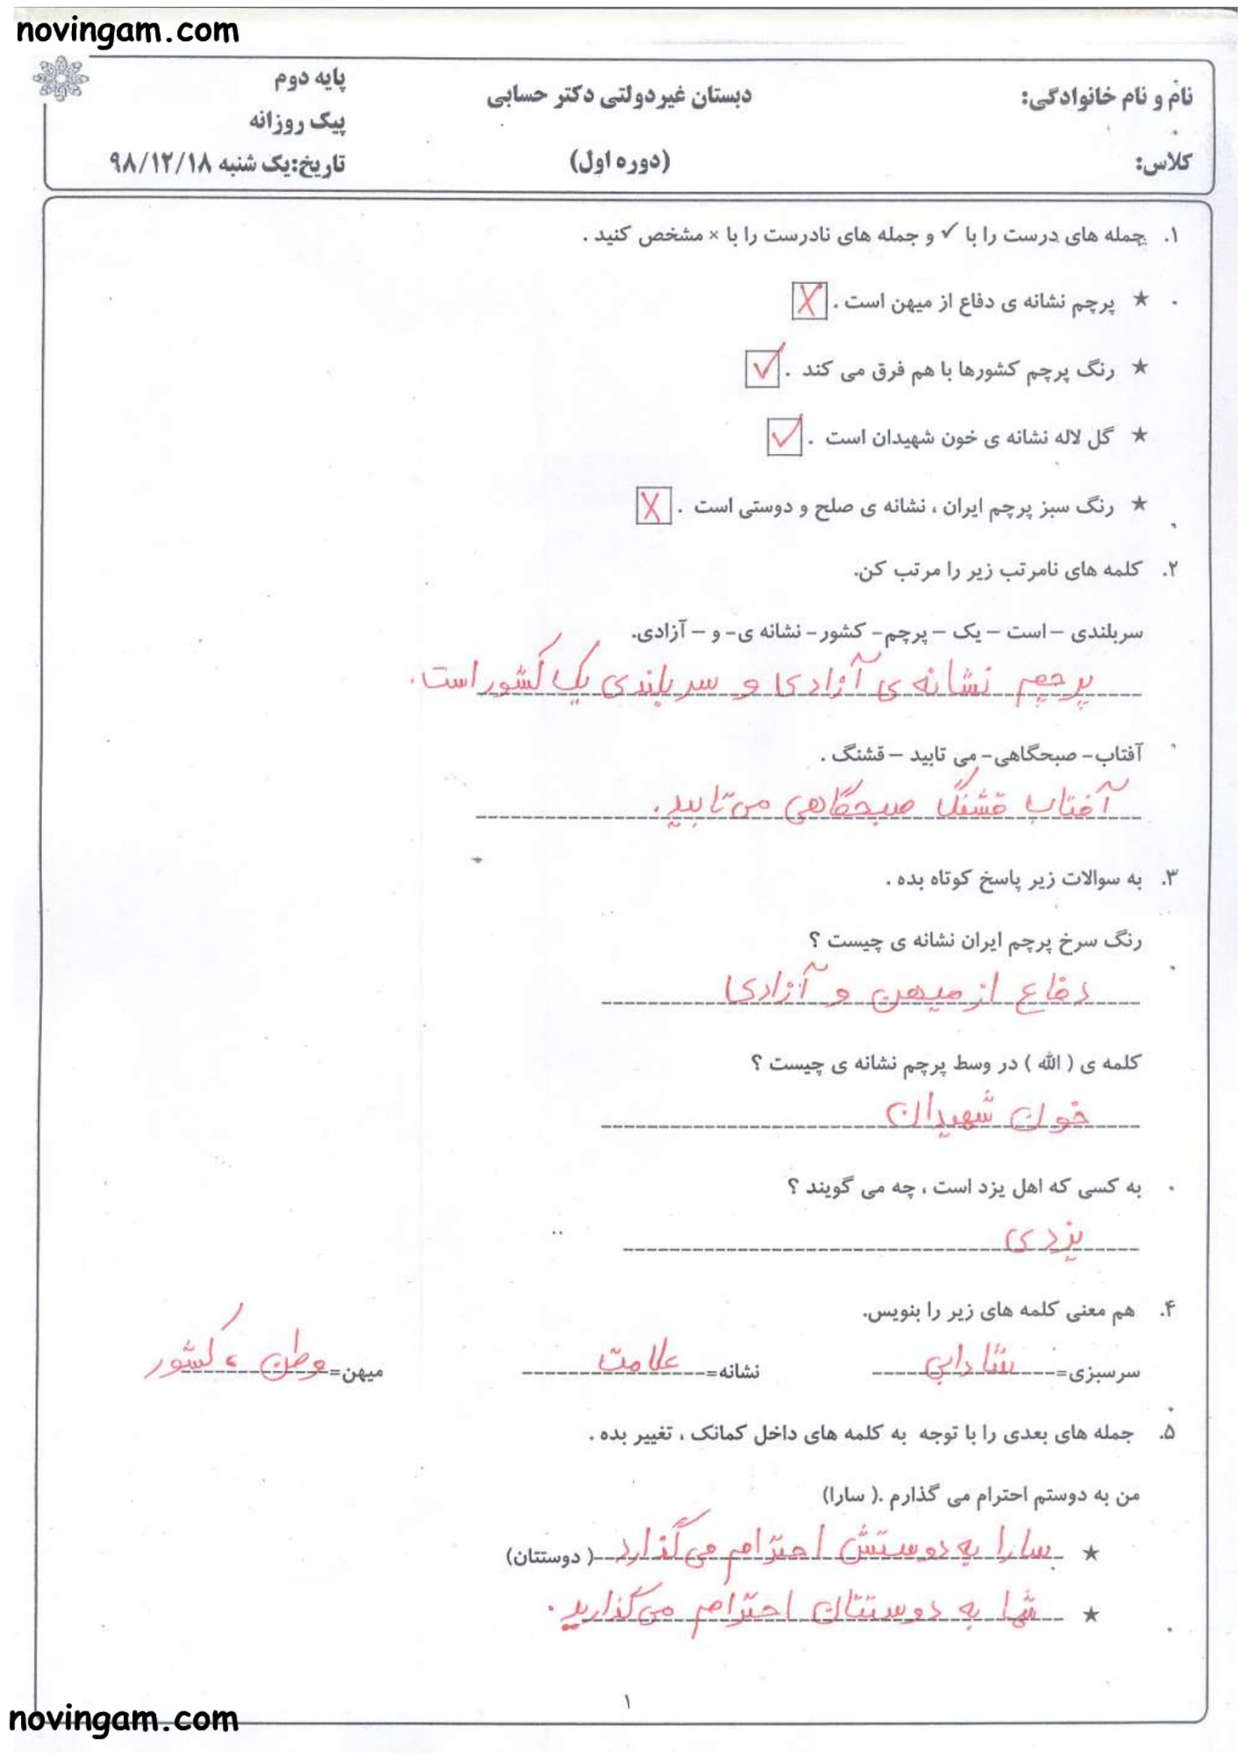 novingam.com
نام و نام خانوادگی:
دبستان غیردولتی دکتر حسابی
پایه دوم
پیک روزانه
کلاس:
(دوره اول)
تاریخ:یک شنبه ۹۸/۱۲/۱۸
۱. جمله های درست را با ✓ و جمله های نادرست را با × مشخص کنید .
★ پرچم نشانه ی دفاع از میهن است . ☒
★ رنگ پرچم کشورها با هم فرق می کند . ☑
★ گل لاله نشانه ی خون شهیدان است . ☑
★ رنگ سبز پرچم ایران ، نشانه ی صلح و دوستی است . ☒
۲. کلمه های نامرتب زیر را مرتب کن.
سربلندی – است – یک – پرچم- کشور- نشانه ی- و – آزادی.
پرچم نشانه ی آزادی و سربلندی یک کشور است.
آفتاب- صبحگاهی- می تابید – قشنگ .
آفتاب قشنگ صبحگاهی می تابید.
۳. به سوالات زیر پاسخ کوتاه بده .
رنگ سرخ پرچم ایران نشانه ی چیست ؟
دفاع از میهن و آزادی
کلمه ی ( الله ) در وسط پرچم نشانه ی چیست ؟
خون شهیدان
به کسی که اهل یزد است ، چه می گویند ؟
یزدی
۴. هم معنی کلمه های زیر را بنویس.
سرسبزی= شادابی نشانه= علامت میهن= وطن ، کشور
۵. جمله های بعدی را با توجه به کلمه های داخل کمانک ، تغییر بده .
من به دوستم احترام می گذارم .( سارا)
★ سارا به دوستش احترام می گذارد ( دوستتان)
★ شما به دوستتان احترام می گذارید .
۱
novingam.com